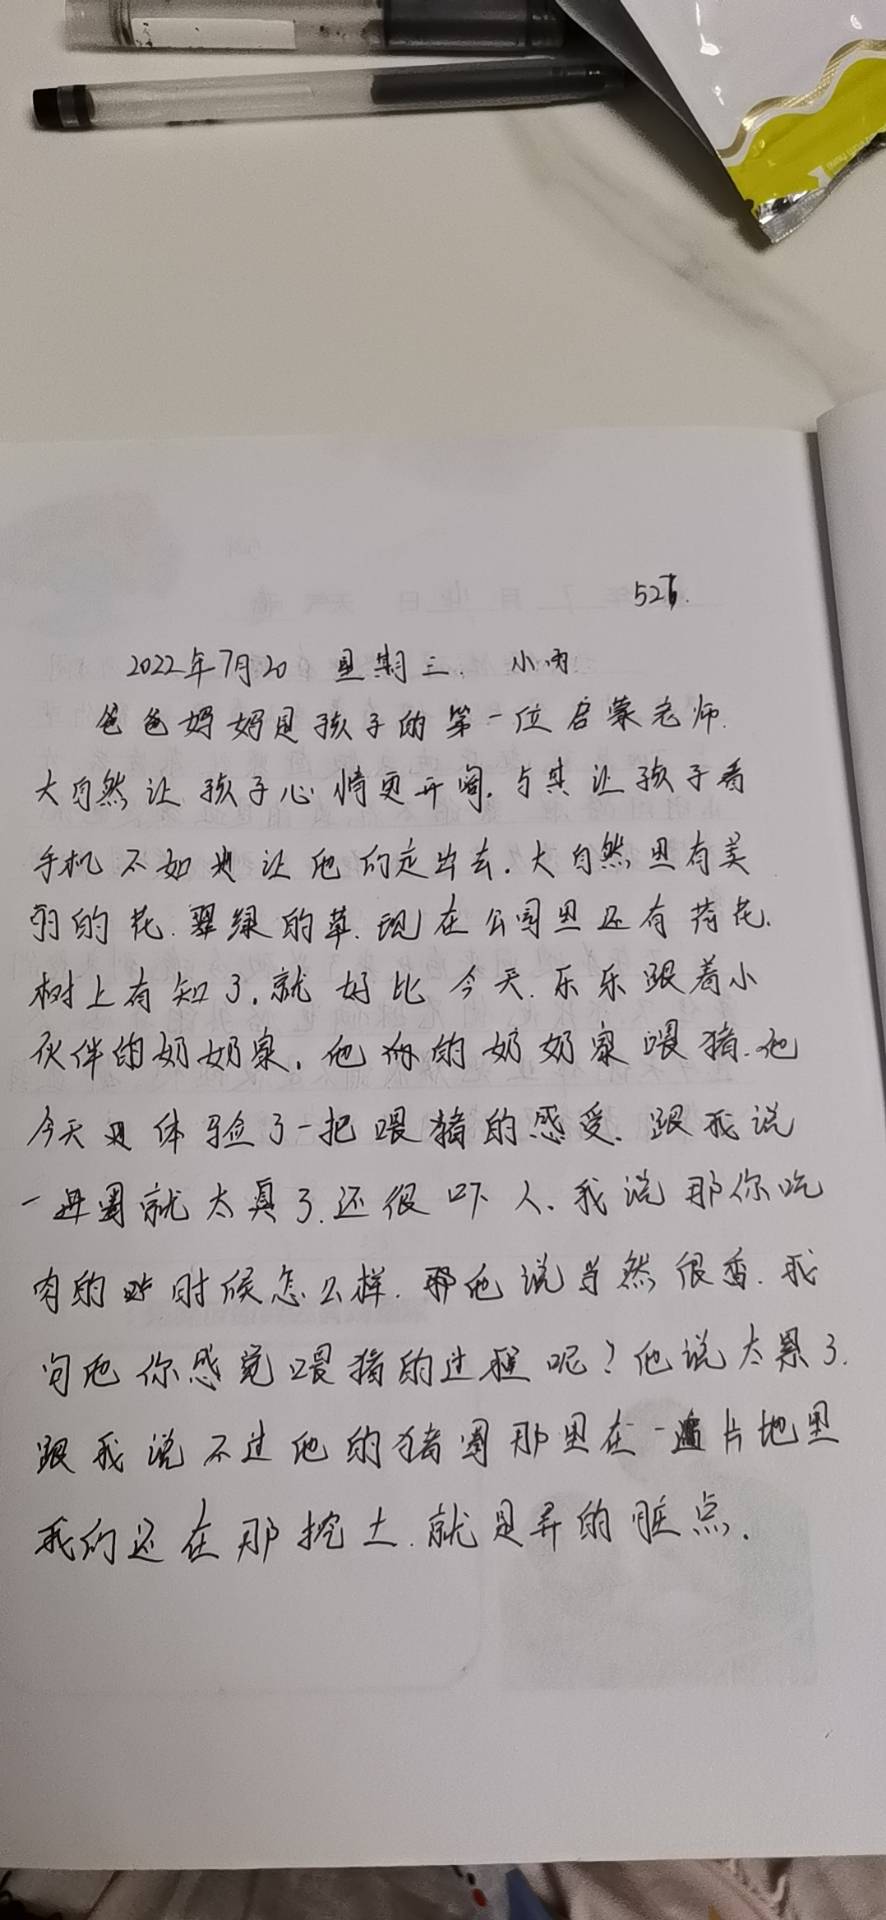 526.
2022年7月20 星期三. 小雨
爸爸妈妈是孩子的第一位启蒙老师.
大自然让孩子心情更开阔.与其让孩子看
手机不如让他们走出去.大自然里有美
丽的花.翠绿的草.现在公园里还有荷花.
树上有知了.就好比今天.乐乐跟着小
伙伴的奶奶家.他俩的奶奶家喂猪.他
今天体验了一把喂猪的感受.跟我说
一进圈就太臭了.还很吓人.我说那你吃
肉的时候怎么样.他说当然很香.我
问他你感觉喂猪的过程呢?他说太累了.
跟我说不过他的猪圈那里在一片地里
我们还在那挖土.就是弄的脏点.